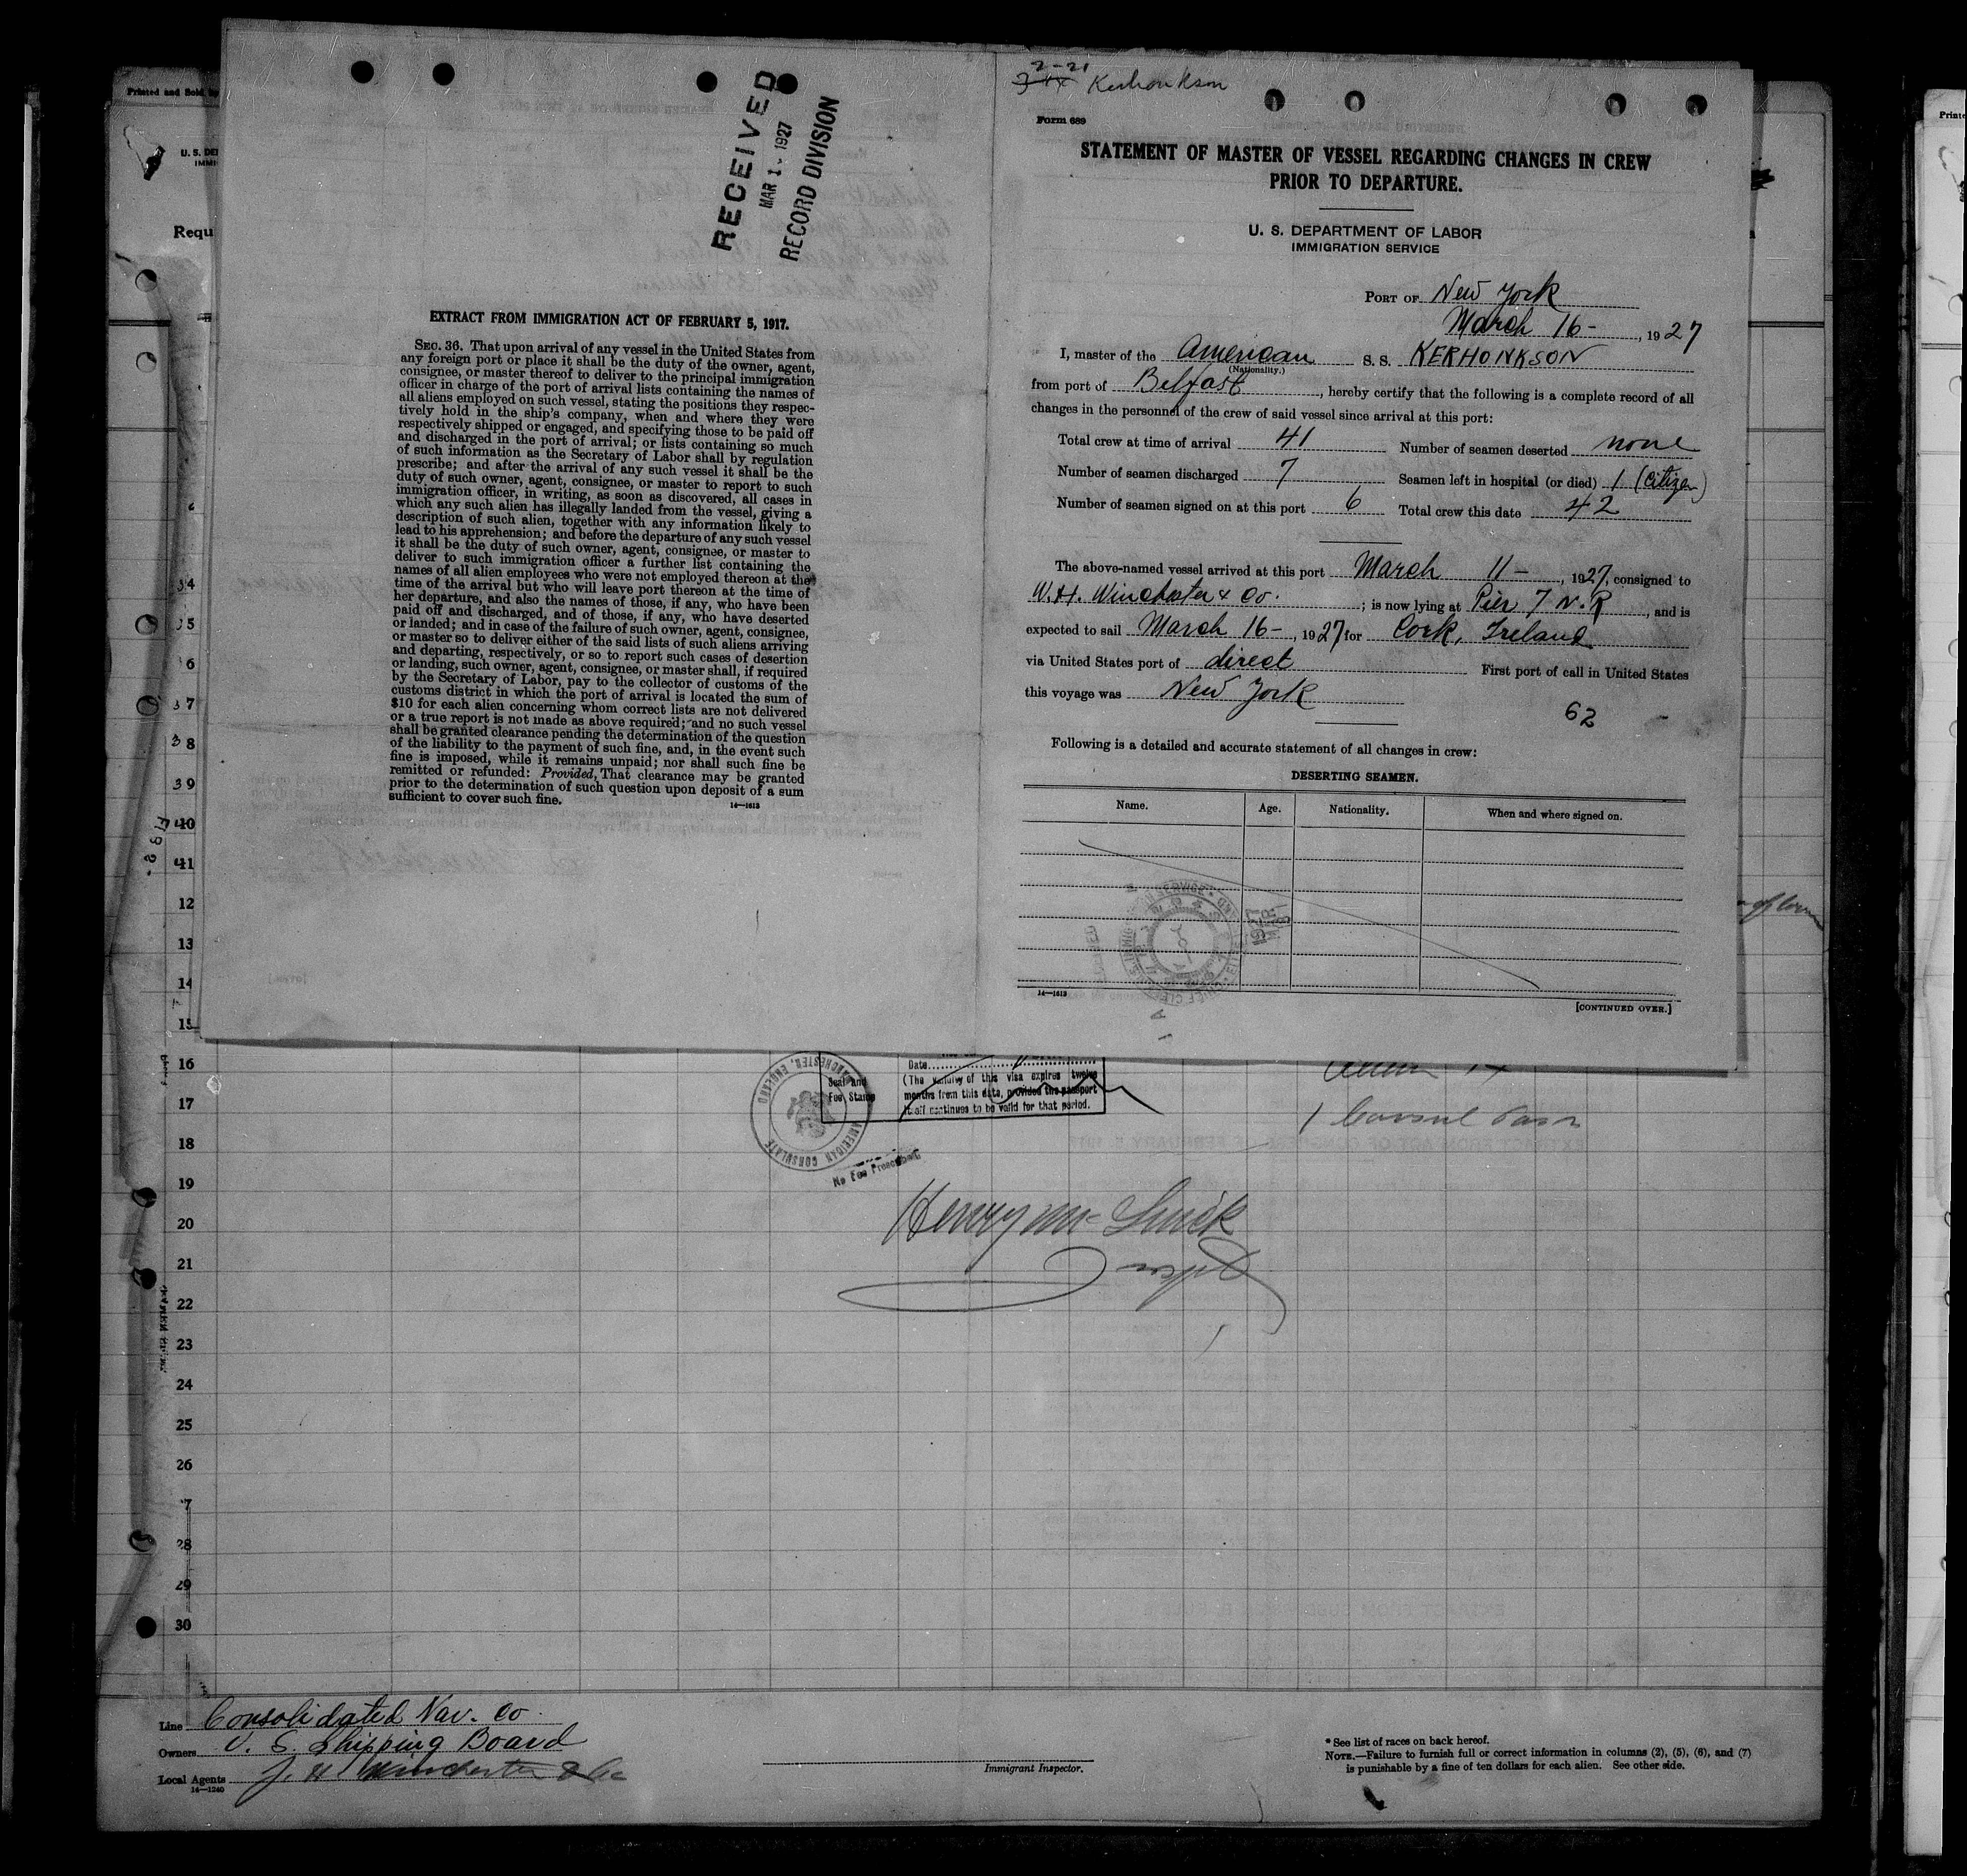 Printed and Sold by
U. S. DE
IMMI
Requ
RECEIVED
MAR 1 1927
RECORD DIVISION
EXTRACT FROM IMMIGRATION ACT OF FEBRUARY 5, 1917.
SEC. 36. That upon arrival of any vessel in the United States from
any foreign port or place it shall be the duty of the owner, agent,
consignee, or master thereof to deliver to the principal immigration
officer in charge of the port of arrival lists containing the names of
all aliens employed on such vessel, stating the positions they respec-
tively hold in the ship's company, when and where they were
respectively shipped or engaged, and specifying those to be paid off
and discharged in the port of arrival; or lists containing so much
of such information as the Secretary of Labor shall by regulation
prescribe; and after the arrival of any such vessel it shall be the
duty of such owner, agent, consignee, or master to report to such
immigration officer, in writing, as soon as discovered, all cases in
which any such alien has illegally landed from the vessel, giving a
description of such alien, together with any information likely to
lead to his apprehension; and before the departure of any such vessel
it shall be the duty of such owner, agent, consignee, or master to
deliver to such immigration officer a further list containing the
names of all alien employees who were not employed thereon at the
time of the arrival but who will leave port thereon at the time of
her departure, and also the names of those, if any, who have been
paid off and discharged, and of those, if any, who have deserted
or landed; and in case of the failure of such owner, agent, consignee,
or master so to deliver either of the said lists of such aliens arriving
and departing, respectively, or so to report such cases of desertion
or landing, such owner, agent, consignee, or master shall, if required
by the Secretary of Labor, pay to the collector of customs of the
customs district in which the port of arrival is located the sum of
$10 for each alien concerning whom correct lists are not delivered
or a true report is not made as above required; and no such vessel
shall be granted clearance pending the determination of the question
of the liability to the payment of such fine, and, in the event such
fine is imposed, while it remains unpaid; nor shall such fine be
remitted or refunded: Provided, That clearance may be granted
prior to the determination of such question upon deposit of a sum
sufficient to cover such fine.
14—1613
2-21
Kerhonkson
Form 689
STATEMENT OF MASTER OF VESSEL REGARDING CHANGES IN CREW
PRIOR TO DEPARTURE.
U. S. DEPARTMENT OF LABOR
IMMIGRATION SERVICE
PORT OF New York
March 16-, 1927
I, master of the American S. S. KERHONKSON
(Nationality.)
from port of Belfast, hereby certify that the following is a complete record of all
changes in the personnel of the crew of said vessel since arrival at this port:
Total crew at time of arrival 41 Number of seamen deserted none
Number of seamen discharged 7 Seamen left in hospital (or died) 1 (citizen)
Number of seamen signed on at this port 6 Total crew this date 42
The above-named vessel arrived at this port March 11-, 1927, consigned to
W. H. Winchester & Co.; is now lying at Pier 7 N. R, and is
expected to sail March 16-, 1927 for Cork, Ireland
via United States port of direct First port of call in United States
this voyage was New York
62
Following is a detailed and accurate statement of all changes in crew:
DESERTING SEAMEN.
Name. Age. Nationality. When and where signed on.
14—1613
[CONTINUED OVER.]
34
35
36
37
38
39
40
41
12
13
14
15
16
17
18
19
20
21
22
23
24
25
26
27
28
29
30
AMERICAN CONSULATE MANCHESTER, ENGLAND
Seal and
Fee Stamp
Date
(The validity of this visa expires twelve
months from this date, provided the passport
itself continues to be valid for that period.
No Fee Prescribed
1 Consul
Henry Mc
Line Consolidated Nav. Co.
Owners U. S. Shipping Board
Local Agents J. H. Winchester & Co
14—1240
Immigrant Inspector.
* See list of races on back hereof.
NOTE.—Failure to furnish full or correct information in columns (2), (5), (6), and (7)
is punishable by a fine of ten dollars for each alien. See other side.